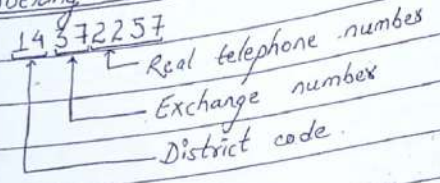 14 372257
Real telephone number
Exchange number
District code.